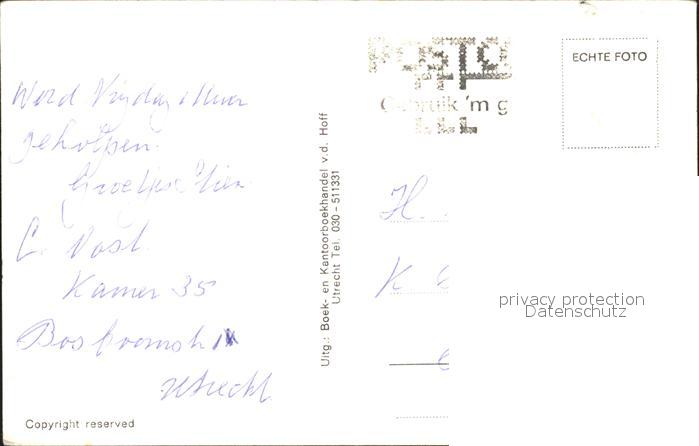 Word Vrijdag
geholpen.
Groetjes Tien
C. Vast
Kamer 35
Utrecht
Copyright reserved
Uitg.: Boek- en Kantoorboekhandel v.d. Hoff
Utrecht Tel. 030 - 511331
Gebruik 'm g
ECHTE FOTO
H.
K
privacy protection
Datenschutz